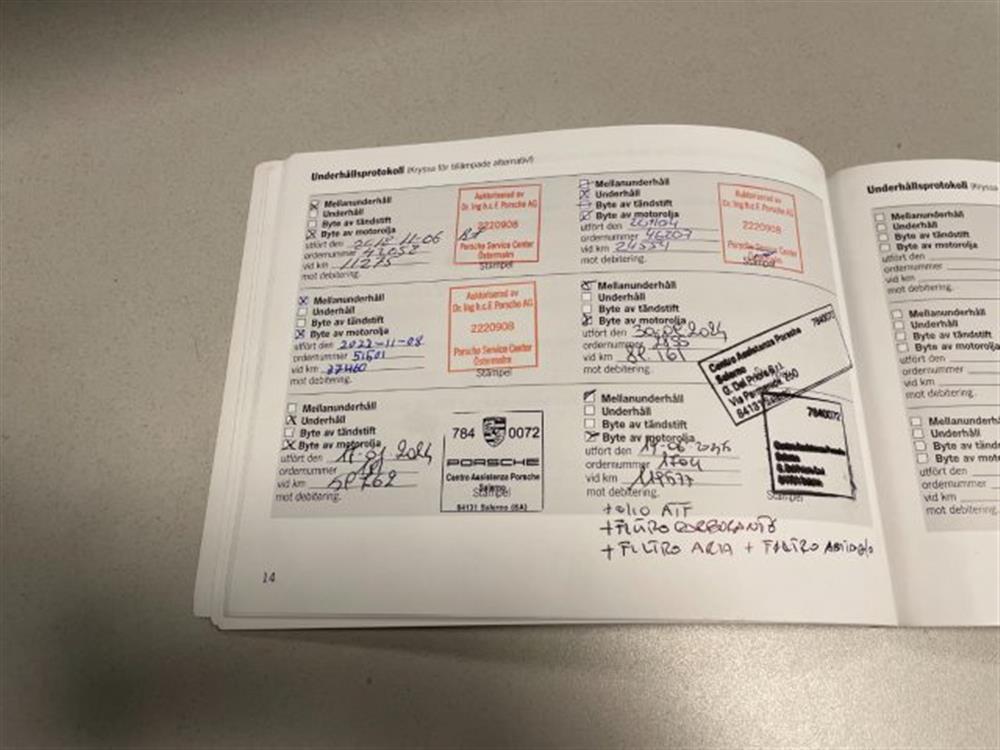 Underhållsprotokoll (Kryssa för tillämpade alternativ!)
Mellanunderhåll
Underhåll
Byte av tändstift
Byte av motorolja
utfört den 11-06
ordernummer 43052
vid km 11275
mot debitering.
Auktoriserad av
Dr. Ing h.c.F. Porsche AG
2220908
Porsche Service Center
Östermalm
Stämpel
Mellanunderhåll
Underhåll
Byte av tändstift
Byte av motorolja
utfört den
ordernummer 46207
vid km 24554
mot debitering.
Auktoriserad av
Dr. Ing h.c.F. Porsche AG
2220908
Porsche Service Center
Östermalm
Stämpel
Mellanunderhåll
Underhåll
Byte av tändstift
Byte av motorolja
utfört den 2022-11-08
ordernummer 51501
vid km 37460
mot debitering.
Auktoriserad av
Dr. Ing h.c.F. Porsche AG
2220908
Porsche Service Center
Östermalm
Stämpel
Mellanunderhåll
Underhåll
Byte av tändstift
Byte av motorolja
utfört den 2024
ordernummer
vid km 82.161
mot debitering.
7840072
Centro Assistenza Porsche
Salerno
Via
84131 Salerno
Mellanunderhåll
Underhåll
Byte av tändstift
Byte av motorolja
utfört den 2024
ordernummer 181
vid km
mot debitering.
784 0072
PORSCHE
Centro Assistenza Porsche
Salerno
Stämpel
84131 Salerno (SA)
Mellanunderhåll
Underhåll
Byte av tändstift
Byte av motorolja
utfört den 19-06-
ordernummer 1704
vid km 119577
mot debitering.
7840072
Salerno
Stämpel
+ olio ATF
+ FILTRO CARBURANTE
+ FILTRO ARIA + FILTRO
14
Underhållsprotokoll (Kryssa
Mellanunderhåll
Underhåll
Byte av tändstift
Byte av motorolja
utfört den
ordernummer
vid km
mot debitering.
Mellanunderhåll
Underhåll
Byte av tändstift
Byte av motorolja
utfört den
ordernummer
vid km
mot debitering.
Mellanunderhåll
Underhåll
Byte av tändstift
Byte av motorolja
utfört den
ordernummer
vid km
mot debitering.